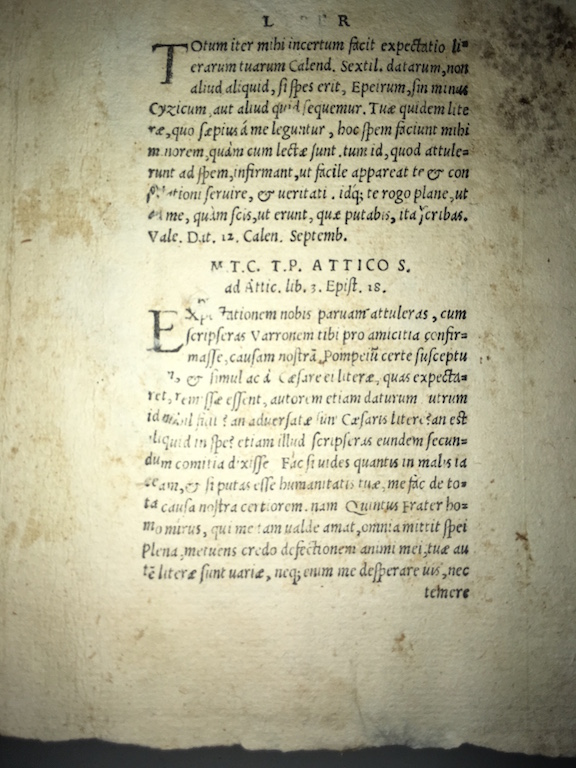 TOtum iter mihi incertum facit expectatio li=
erarum tuarum Calend. Sextil. datarum, non
aliud aliquid, si spes erit, Epeirum, sin minus
Cyzicum, aut aliud quid sequemur. Tuæ quidem lite
ræ, quo sæpius á me leguntur, hoc spem faciunt mihi
minorem, quàm cum lectæ sunt. tum id, quod attule=
runt ad spem, infirmant, ut facile appareat te & con
servire, & veritati. idq; te rogo plane, ut
me, quàm scis, ut erunt, quæ putabis, ita scribas.
Vale. Dat. 12. Calen. Septemb.
M. T. C. T. P. ATTICO S.
ad Attic. lib. 3. Epist. 18.
Expectationem nobis paruam attuleras, cum
scripseras Varronem tibi pro amicitia confir=
masse, causam nostrã Pompeiũ certe susceptu
& simul ac á Cæsare ei literæ, quas expecta=
essent, autorem etiam daturum utrum
id an aduersatæ sũt Cæsaris literæ? an est
aliquid in spe? etiam illud scripseras eundem secun=
dum comitia dixisse Fac si uides quantis in malis ia
ceam, & si putas esse humanitatis tuæ, me fac de to=
ta causa nostra certiorem. nam Quintus Frater ho=
mo mirus, qui me tam ualde amat, omnia mittit spei
Plena, metuens credo defectionem animi mei, tuæ au
tẽ literæ sunt uariæ, neq; enim me desperare uis, nec
temere